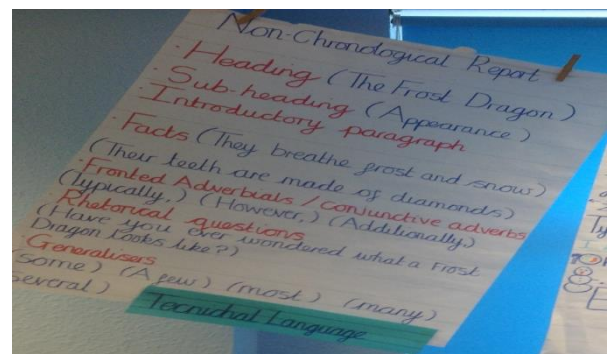 Non-Chronological Report
· Heading (The Frost Dragon)
· Sub-heading (Appearance)
· Introductory paragraph
· Facts (They breathe frost and snow)
(Their teeth are made of diamonds)
· Fronted Adverbials / conjunctive adverbs
(Typically,) (However,) (Additionally,)
Rhetorical questions
(Have you ever wondered what a Frost
Dragon Looks like?)
· Generalisers
(some) (A few) (most) (many)
(several)
Tecnichal Language